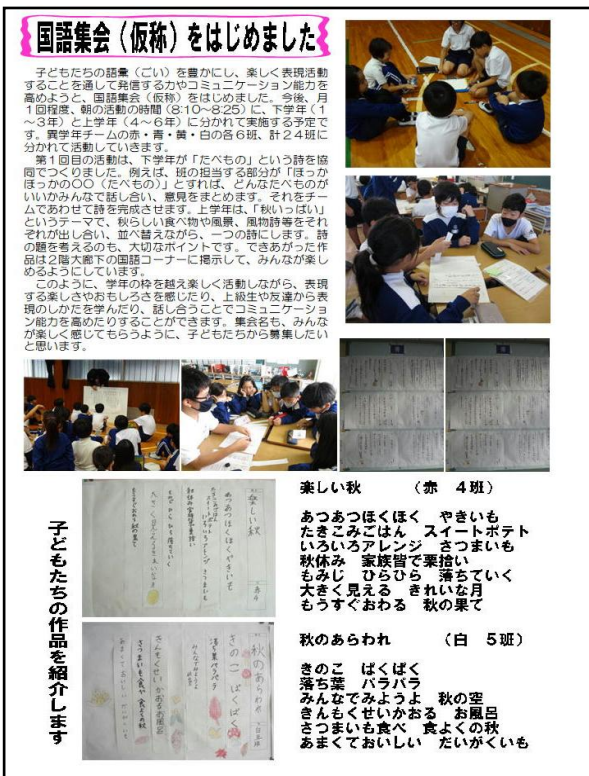 国語集会（仮称）をはじめました
　子どもたちの語彙（ごい）を豊かにし、楽しく表現活動
することを通して発信する力やコミュニケーション能力を
高めようと、国語集会（仮称）をはじめました。今後、月
１回程度、朝の活動の時間（8:10～8:25）に、下学年（１
～３年）と上学年（４～６年）に分かれて実施する予定で
す。異学年チームの赤・青・黄・白の各６班、計２４班に
分かれて活動していきます。
　第１回目の活動は、下学年が「たべもの」という詩を協
同でつくりました。例えば、班の担当する部分が「ほっか
ほっかの〇〇（たべもの）」とすれば、どんなたべものが
いいかみんなで話し合い、意見をまとめます。それをチー
ムであわせて詩を完成させます。上学年は、「秋いっぱい」
というテーマで、秋らしい食べ物や風景、風物詩等をそれ
ぞれが出し合い、並べ替えながら、一つの詩にします。詩
の題を考えるのも、大切なポイントです。できあがった作
品は２階大廊下の国語コーナーに掲示して、みんなが楽し
めるようにしています。
　このように、学年の枠を越え楽しく活動しながら、表現
する楽しさやおもしろさを感じたり、上級生や友達から表
現のしかたを学んだり、話し合うことでコミュニケーショ
ン能力を高めたりすることができます。集会名も、みんな
が楽しく感じてもらうように、子どもたちから募集したい
と思います。
子どもたちの作品を紹介します
楽しい秋
あつあつほくほくやきいも
たきこみごはん
スイートポテト
いろいろアレンジ さつまいも
秋休み家族皆で栗拾い
もみじひらひら落ちていく
大きく見えるきれいな月
もうすぐおわる秋の果て
秋のあらわれ
きのこ ぱくぱく
落ち葉パラパラ
みんなでみようよ
秋の空
きんもくせいかおるお風呂
さつまいも食べ 食よくの秋
あまくておいしい だいがくいも
楽しい秋　　　（赤　４班）
あつあつほくほく　やきいも
たきこみごはん　スイートポテト
いろいろアレンジ　さつまいも
秋休み　家族皆で栗拾い
もみじ　ひらひら　落ちていく
大きく見える　きれいな月
もうすぐおわる　秋の果て
秋のあらわれ　　　（白　５班）
きのこ　ぱくぱく
落ち葉　パラパラ
みんなでみようよ　秋の空
きんもくせいかおる　お風呂
さつまいも食べ　食よくの秋
あまくておいしい　だいがくいも